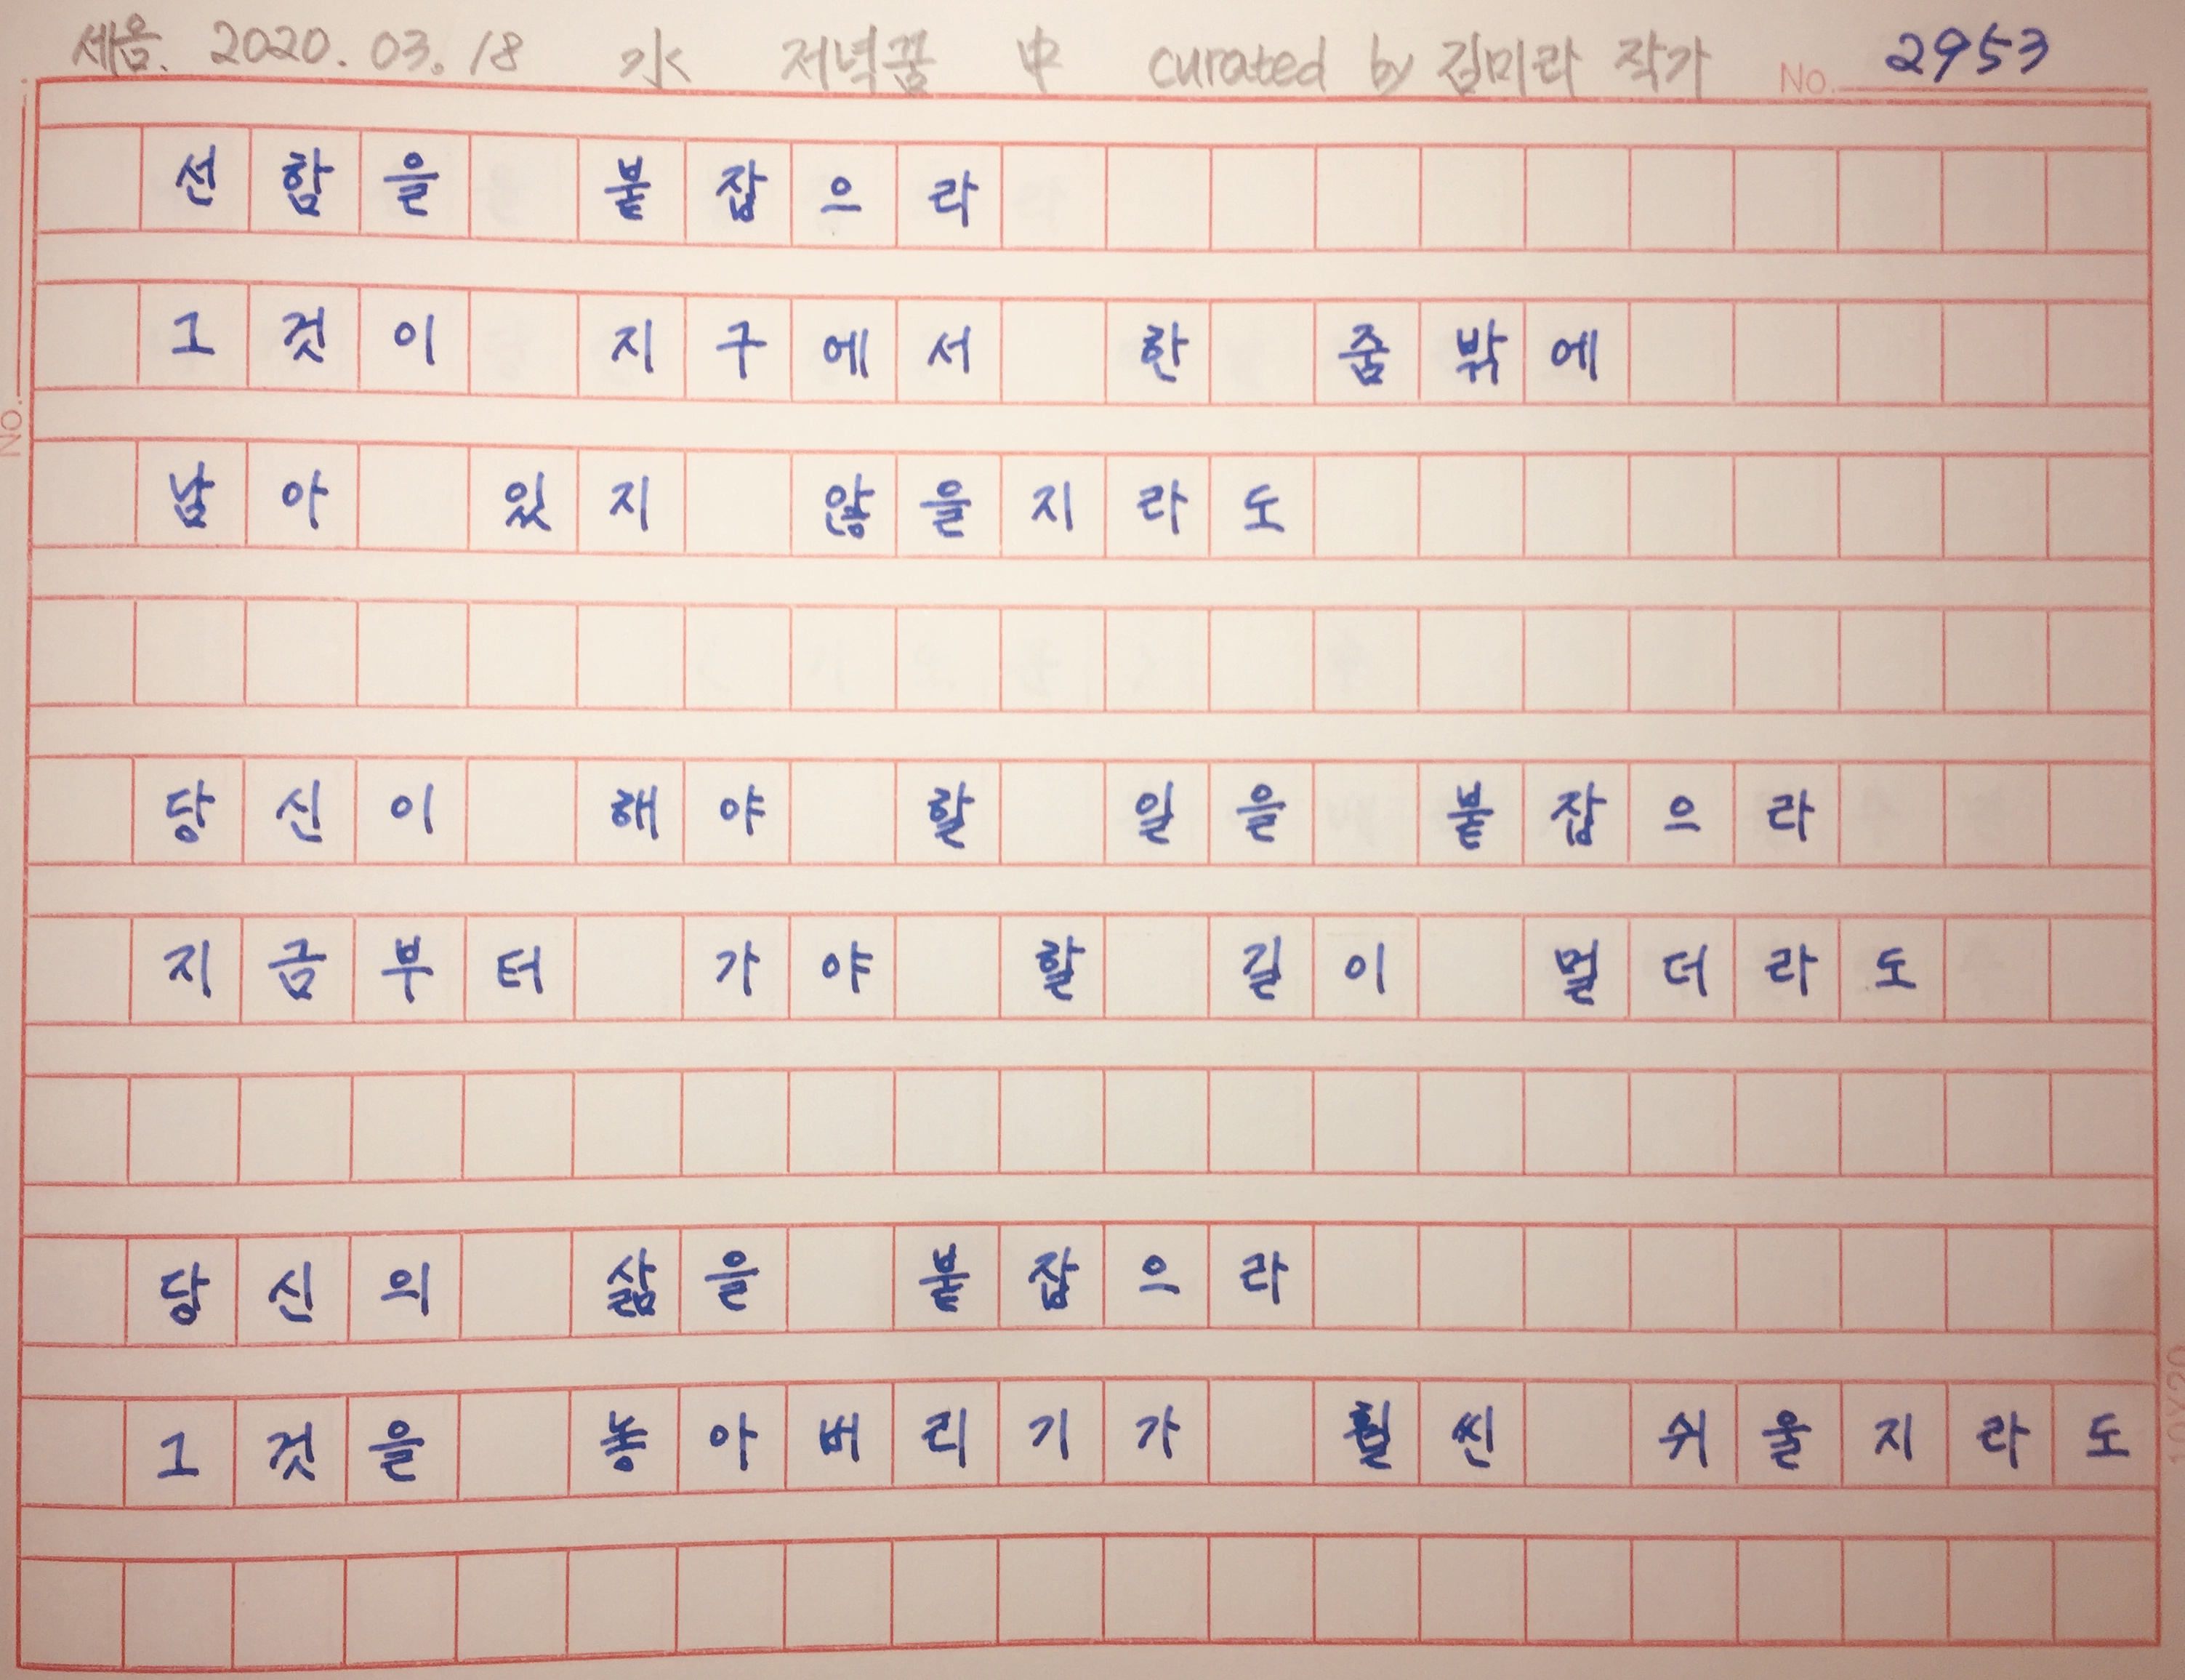 세음. 2020. 03. 18 水 저녁꿈 中 curated by 김미라 작가 No. 2953
선함을 붙잡으라
그것이 지구에서 한 줌밖에
남아 있지 않을지라도
당신이 해야 할 일을 붙잡으라
지금부터 가야 할 길이 멀더라도
당신의 삶을 붙잡으라
그것을 놓아버리기가 훨씬 쉬울지라도
No.
10X20